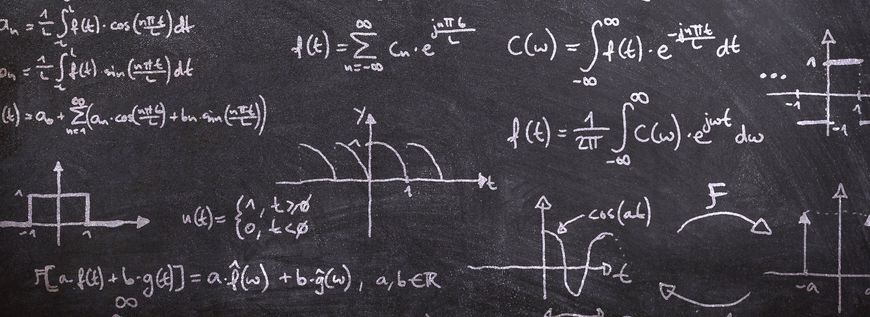 aₙ = 1/L ∫ f(t)·cos(nπt/L)dt
ₙ = 1/L ∫ f(t)·sin(nπt/L)dt
(t) = a₀ + ∑ₙ₌₁^∞ (aₙ·cos(nπt/L) + bₙ·sin(nπt/L))
f(t) = ∑ₙ₌₋∞^∞ Cₙ·e^(jnπt/L)
C(ω) = ∫₋∞^∞ f(t)·e^(-jnπt/L) dt
f(t) = 1/2π ∫₋∞^∞ C(ω)·e^(jωt) dω
...
1
-1 1
-1
y
1
1 t
-1 1
u(t) = {1, t≥0
0, t<0
cos(at)
t
F
-a
F[a·f(t) + b·g(t)] = a·f̂(ω) + b·ĝ(ω), a,b∈ℝ
∞